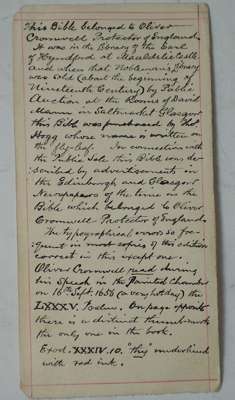 This Bible belonged to Oliver
Cromwell Protector of England.
It was in the library of the Earl
of Hyndford at Mauldslie Castle
And when that Nobleman's library
was sold (about the beginning of
Nineteenth Century) by Public
Auction at the Rooms of David
Mann in Saltmarket Glasgow
this Bible was purchased by
Hogg whose name is written on
the fly-leaf. In connection with
the Public Sale this Bible was de-
scribed by advertisements in
the Edinburgh and Glasgow
Newspapers of the time as the
Bible which belonged to Oliver
Cromwell Protector of England
The typographical errors so fre-
quent in most copies of this edition
correct in this except one.
Oliver Cromwell read during
his Speech in the Painted Chamber
on 16th Sept. 1656 (a very hot day) the
LXXXV. Psalm. On page opposite
there is a distinct thumb-mark
the only one in the book.
Exod. XXXIV. 10. "thy" underlined
with red ink.